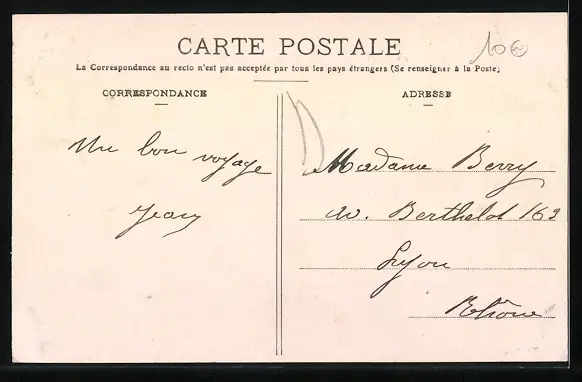 CARTE POSTALE
10€
La Correspondance au recto n'est pas acceptée par tous les pays étrangers (Se renseigner à la Poste)
CORRESPONDANCE
ADRESSE
Un bon voyage
Jean
Madame Berry
av. Berthelot 163
Lyon
Rhône